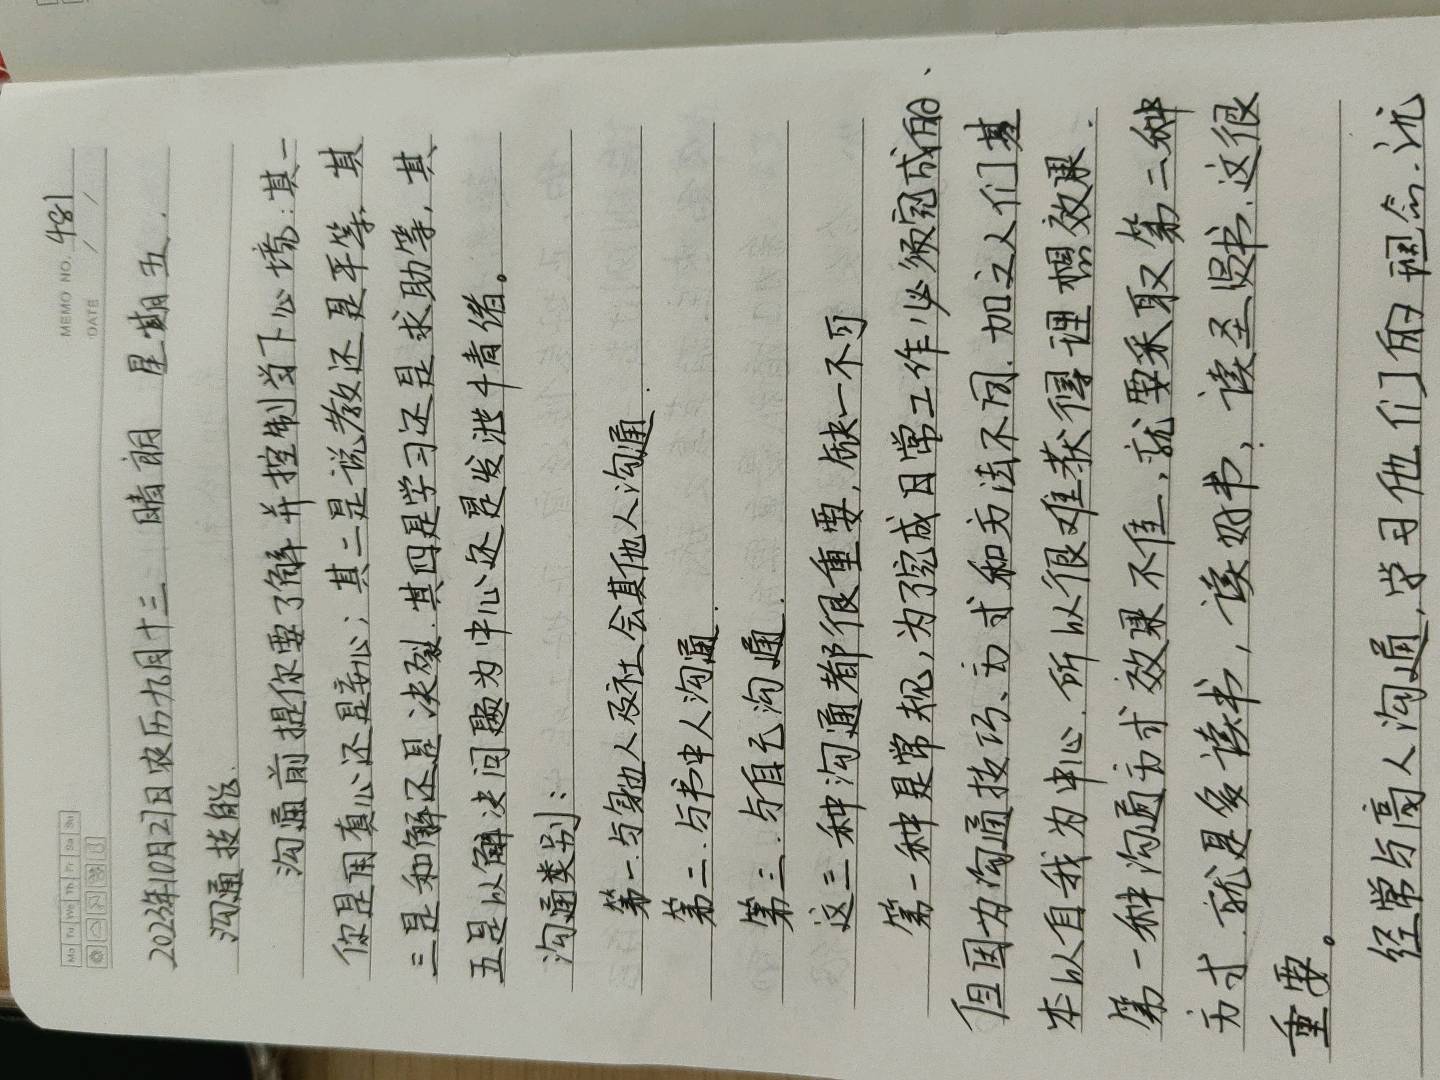 MEMO NO. 481
Mo Tu We Th Fr Sa Su
DATE / /
2023年10月27日农历九月十三 晴朗 星期五.
沟通技能.
沟通前提你要了解并控制当下心境:其一
你是用真心还是妄心;其二是说教还是平等.其
三是和解还是决裂.其四是学习还是求助等,其
五是以解决问题为中心还是发泄牛情绪。
沟通类别:
第一.与身边人及社会其他人沟通.
第二.与书中人沟通.
第三.与自己沟通.
这三种沟通都很重要,缺一不可
第一种是常规,为了完成日常工作必须完成的、
但因为沟通技巧、方式和方法不同.加之人们基
本以自我为中心.所以很难获得理想效果.
第一种沟通方式效果不佳,就要采取第二种
方式.就是多读书,读好书,读圣贤书.这很
重要。
经常与高人沟通,学习他们的理念.沉